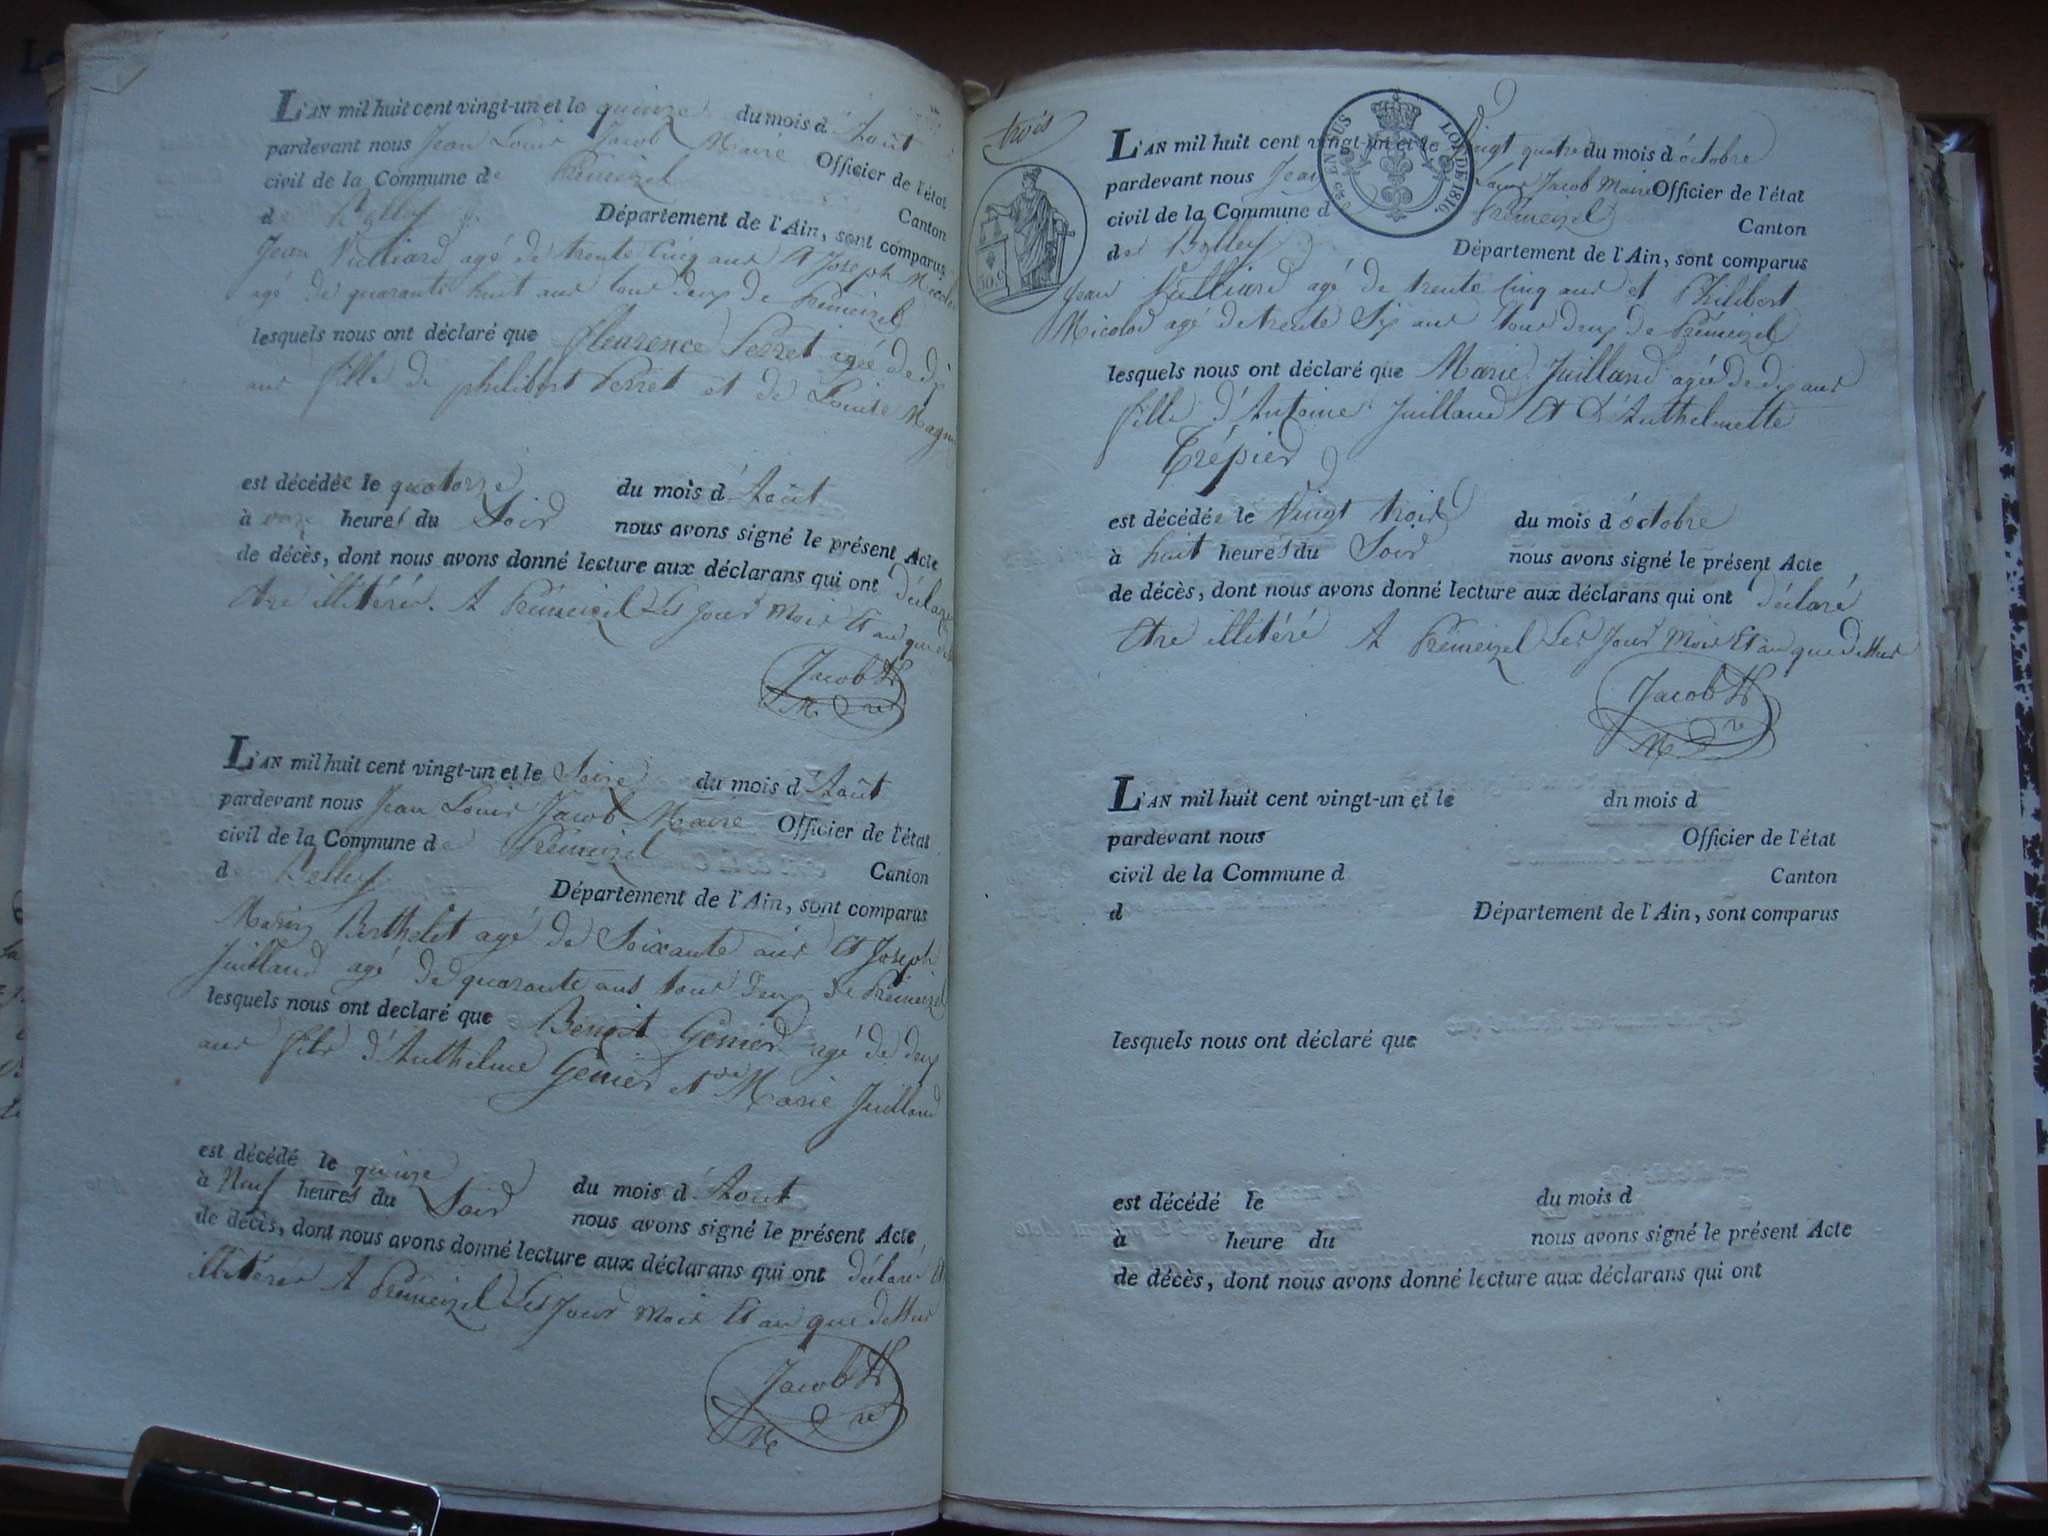 L'AN mil huit cent vingt-un et le quinze du mois d'Août
pardevant nous Jean Louis Jacob Maire Officier de l'état
civil de la Commune de Prémeizel Canton
de Belley Département de l'Ain, sont comparus
Jean Vulliard agé de trente cinq ans et Joseph Nicolod
agé de quarante huit ans tous deux de Prémeizel
lesquels nous ont déclaré que fleurence Perret agée de dix
ans fille de philibert Perret et de Louise
est décédée le quatorze du mois d'Août
à onze heures du Soir nous avons signé le présent Acte
de décès, dont nous avons donné lecture aux déclarans qui ont déclaré
être illitérés. A Prémeizel Les jour mois et an que
Jacob
L'AN mil huit cent vingt-un et le Seize du mois d'Août
pardevant nous Jean Louis Jacob Maire Officier de l'état
civil de la Commune de Prémeizel Canton
de Belley Département de l'Ain, sont comparus
Marin Berthelet agé de Soixante ans et Joseph
Juilland agé de quarante ans tous deux de Prémeizel
lesquels nous ont declaré que Benoit Genier agé de deux
ans fils d'Anthelme Genier et de Marie Juilland
est décédé le quinze du mois d'Aout
à Neuf heures du Soir nous avons signé le présent Acte
de décès, dont nous avons donné lecture aux déclarans qui ont déclaré
illitérés A Prémeizel Les jour mois et an que dessus
Jacob
trois
EN SUS
LOI DE 1816.
L'AN mil huit cent vingt-un et le Vingt quatre du mois d'octobre
pardevant nous Jean Louis Jacob Maire Officier de l'état
civil de la Commune d Prémeizel Canton
de Belley Département de l'Ain, sont comparus
Jean Vulliard agé de trente cinq ans et Philibert
Nicolod agé de trente Six ans tous deux de Prémeizel
lesquels nous ont déclaré que Marie Juilland agée de dix ans
fille d'Antoine Juilland et d'Anthelmette
Trépier
est décédée le Vingt trois du mois d'octobre
à huit heures du Soir nous avons signé le présent Acte
de décès, dont nous avons donné lecture aux déclarans qui ont déclaré
être illitéré A Prémeizel Les jour mois et an que dessus
Jacob
L'AN mil huit cent vingt-un et le dn mois d
pardevant nous Officier de l'état
civil de la Commune d Canton
d Département de l'Ain, sont comparus
lesquels nous ont déclaré que
est décédé le du mois d
à heure du nous avons signé le présent Acte
de décès, dont nous avons donné lecture aux déclarans qui ont